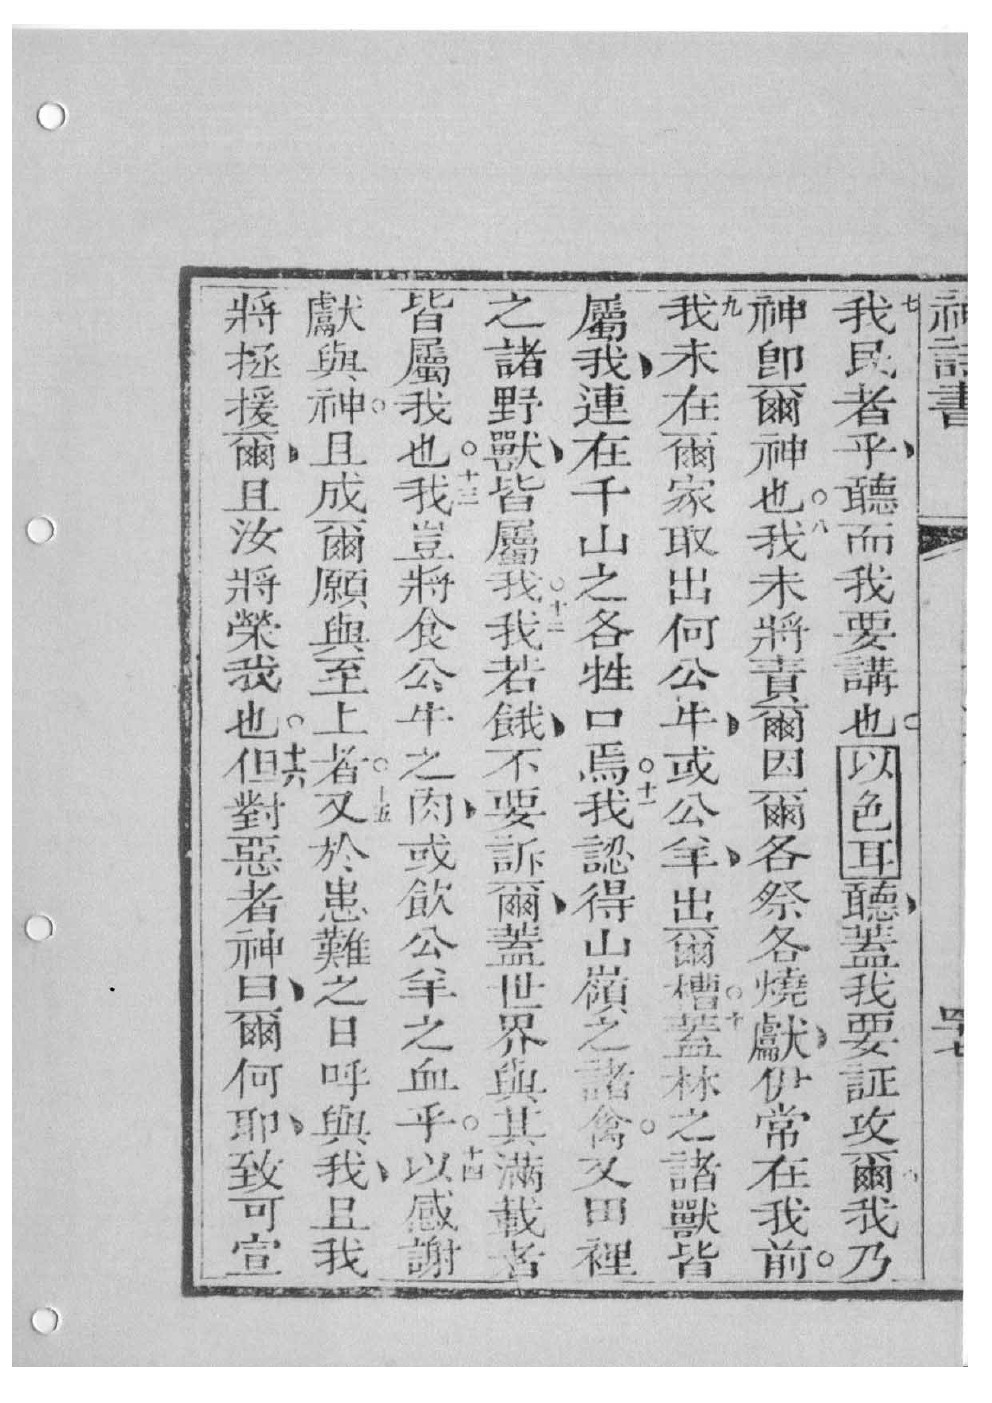 神詩書
七我民者乎聽而我要講也○以色耳聽蓋我要証攻爾我乃
神即爾神也○八我未將責爾因爾各祭各燒獻伊常在我前○
九我未在爾家取出何公牛或公羊出爾槽○十蓋林之諸獸皆
屬我連在千山之各牲口焉○十一我認得山嶺之諸禽○又田裡
之諸野獸皆屬我○十二我若餓不要訴爾蓋世界與其滿載者
皆屬我也○十三我豈將食公牛之肉或飲公羊之血乎○十四以感謝
獻與神○且成爾願與至上者○十五又於患難之日呼與我且我
將拯援爾且汝將榮我也○十六但對惡者神曰爾何耶致可宣